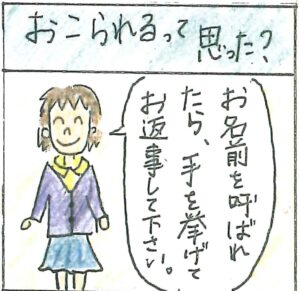 おこられるって思った?
お名前を呼ばれ
たら、手を挙げて
お返事して下さい。